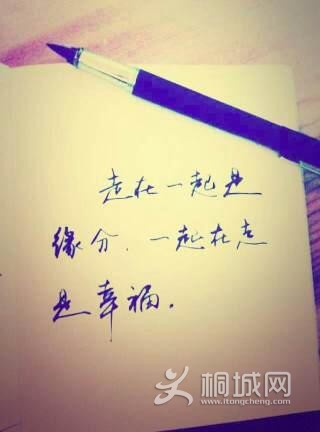 走在一起是
缘分，一起在走
是幸福。
桐城网
www.itongcheng.com